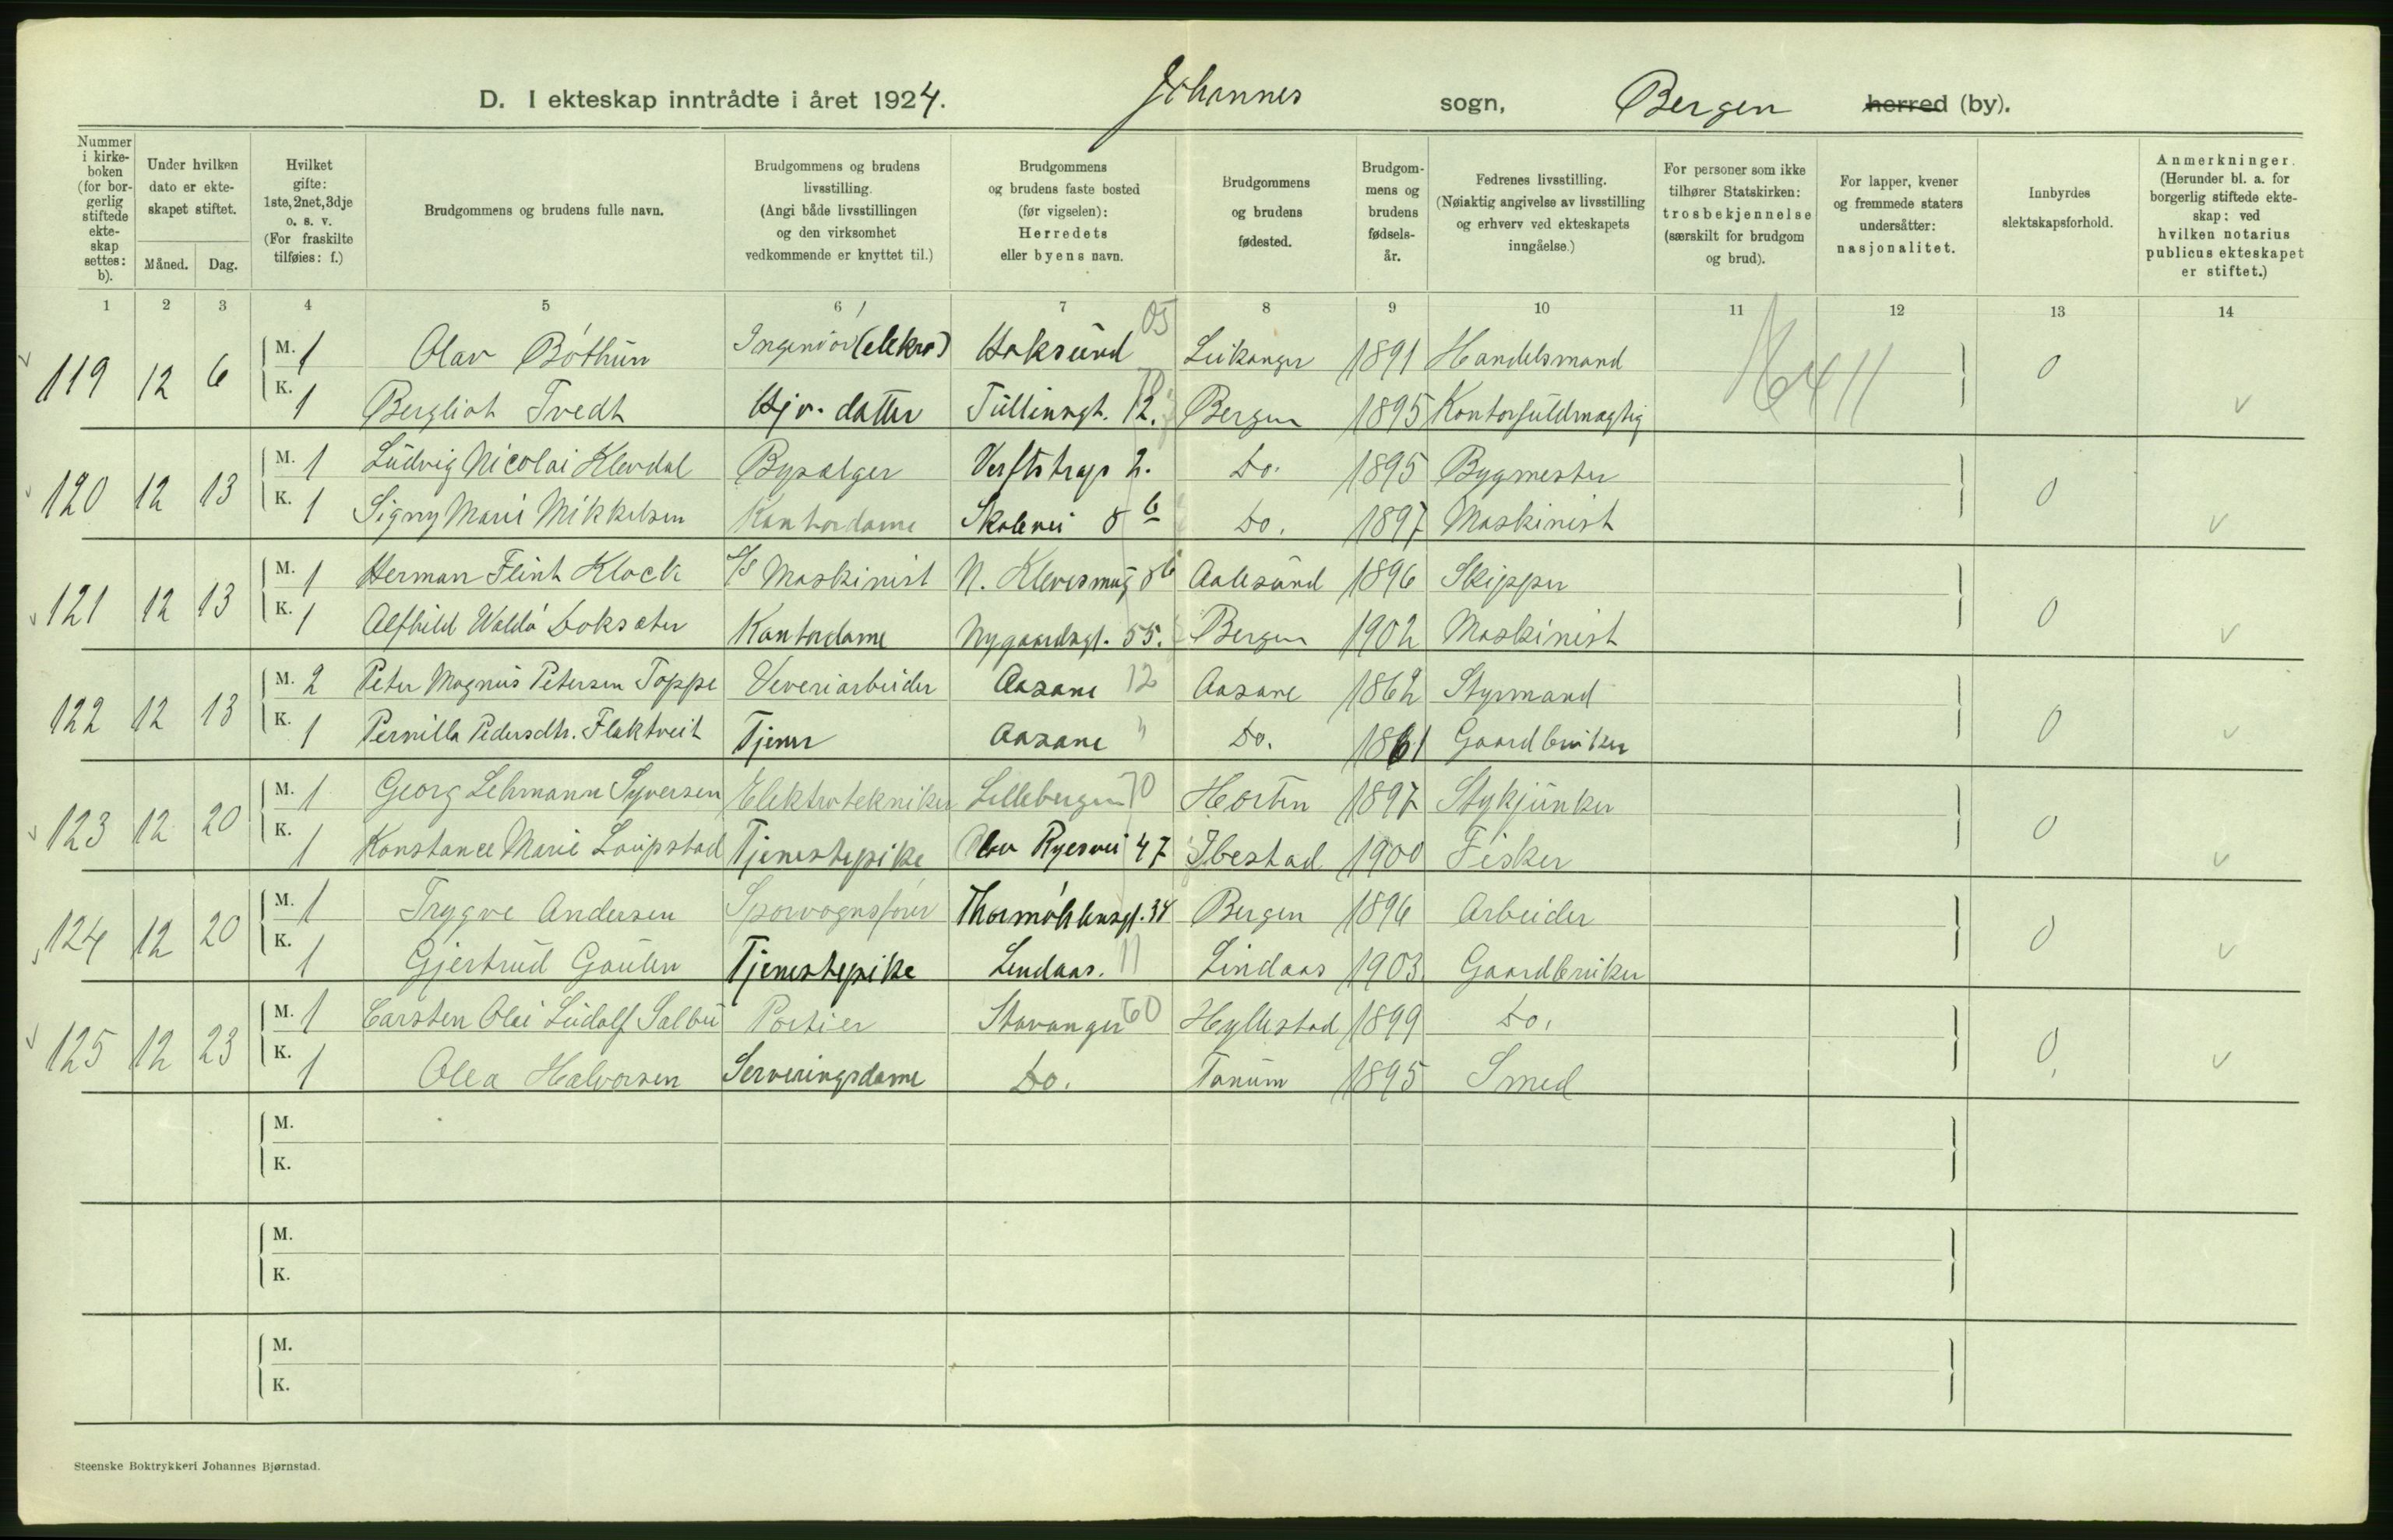 D. I ekteskap inntrådte i året 1924. Johannes sogn, Bergen herred (by).
Nummer i kirke-boken (for bor-gerlig stiftede ekte-skap settes: b).
Under hvilken dato er ekte-skapet stiftet.
Måned. Dag.
Hvilket gifte: 1ste, 2net, 3dje o. s. v. (For fraskilte tilføies: f.)
Brudgommens og brudens fulle navn.
Brudgommens og brudens livsstilling. (Angi både livsstillingen og den virksomhet vedkommende er knyttet til.)
Brudgommens og brudens faste bosted (før vigselen): Herredets eller byens navn.
Brudgommens og brudens fødested.
Brudgom-mens og brudens fødsels-år.
Fedrenes livsstilling. (Nøiaktig angivelse av livsstilling og erhverv ved ekteskapets inngåelse.)
For personer som ikke tilhører Statskirken: trosbekjennelse (særskilt for brudgom og brud).
For lapper, kvener og fremmede staters undersåtter: nasjonalitet.
Innbyrdes slektskapsforhold.
Anmerkninger. (Herunder bl. a. for borgerlig stiftede ekte-skap: ved hvilken notarius publicus ekteskapet er stiftet.)
1 2 3 4 5 6 7 8 9 10 11 12 13 14
119 12 6 M. 1 Olav Böthun Ingeniör (elekro) Haksund 05 Leikanger 1891 Handelsmand 0
K. 1 Bergliot Tvedt Hjv. datter Tullinsgt. 12. Bergen 1895 Kontorfuldmægtig v
120 12 13 M. 1 Ludvig Nicolai Klevdal Bypælger Verftstrap 2. Do. 1895 Bygmester 0
K. 1 Signy Marie Mikkelsen Kontordame Skolevei 8 b Do. 1897 Maskinist v
121 12 13 M. 1 Herman Flint Klock S/S Maskinist N. Kleivesmug 8b Aalesund 1896 Skipper 0
K. 1 Alfhild Waldö Doksæter Kontordame Nygaardsgt. 55. Bergen 1902 Maskinist v
122 12 13 M. 2 Peter Magnus Petersen Toppe Veveriarbeider Aasane 12 Aasane 1862 Styrmand 0
K. 1 Pernilla Pedersdtr. Flaktveit Tjener Aasane " Do. 1861 Gaardbruker v
123 12 20 M. 1 Georg Lehmann Syversen Elektrotekniker Lillebergen 70 Horten 1897 Stykjunker 0
K. 1 Konstance Marie Laupstad Tjenestepike Olav Ryesvei 47 Ibestad 1900 Fisker v
124 12 20 M. 1 Trygve Andersen Sporvognsförer Thormöhlensgt. 34 Bergen 1896 Arbeider 0
K. 1 Gjertrud Gaulen Tjenestepike Lindaas. 11 Lindaas 1903 Gaardbruker v
125 12 23 M. 1 Carsten Olai Ludolf Salbu Portier Stavanger 60 Hyllestad 1899 Do. 0
K. 1 Olea Halvorsen Serveringsdame Do. Tanum 1895 Smed v
M.
K.
M.
K.
M.
K.
Steenske Boktrykkeri Johannes Bjørnstad.